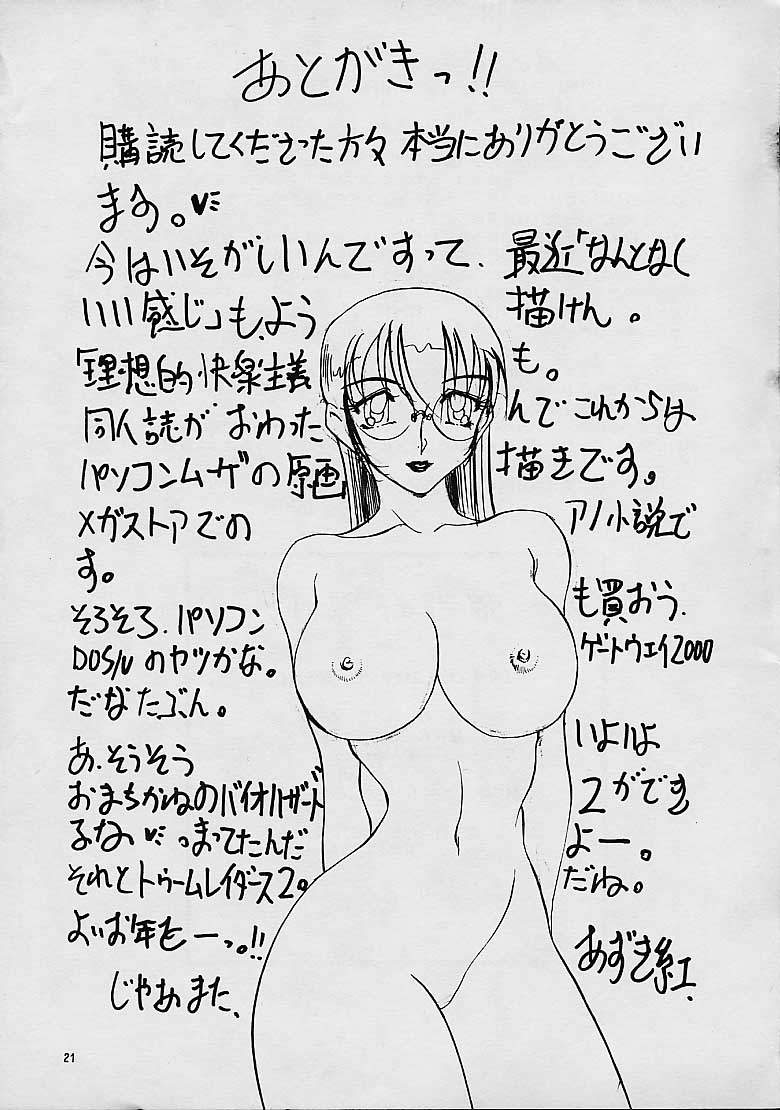 あとがきっ!!
購読してくださった方々 本当にありがとうござい
ます。
今はいそがしいんですって、最近「なんとなく
いい感じ」も、よう描けん。
「理想的快楽主義も。
同人誌がおわったんでこれからは
パソコンムザの原画描きです。
メガストアでのアノ小説で
す。
そろそろ、パソコンも買おう、
DOS/VのヤツかなKゲートウェイ2000
だなたぶん。
あ、そうそういよいよ
おまちかねのバイオハザード2ができ
るな まってたんだよー。
それとトゥームレイダース2。だね。
よいお年をーっ。!!
じゃあまた、
あずき紅、
21